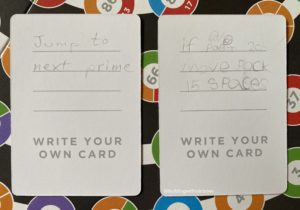 Jump to
next prime
WRITE YOUR
OWN CARD
If
past 20
move back
15 spaces
WRITE YOUR
OWN CARD
66